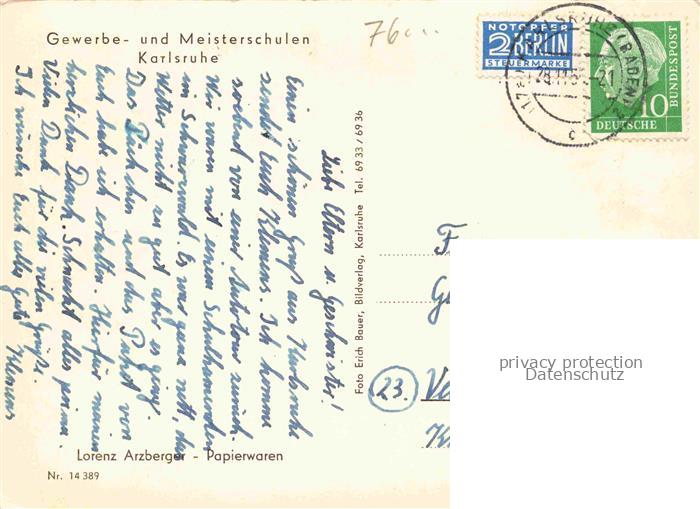 Gewerbe- und Meisterschulen
Karlsruhe
NOTOPFER
2 BERLIN
STEUERMARKE
KARLSRUHE (BADEN)
10
DEUTSCHE
BUNDESPOST
Liebe Eltern u. Geschwister!
Einen schönen Gruß aus Karlsruhe
sendet Euch Klemens. Ich komme
soeben von einer Autotour zurück.
Wir waren mit einem Schulkameraden
im Schwarzwald. Es war ganz nett, das
Wetter nicht so gut aber es ging.
Das Päckchen und das Paket von
Euch habe ich erhalten. Hierfür meinen
herzlichen Dank. Schmeckt alles prima.
Vielen Dank für die vielen Grüße.
Ich wünsche Euch alles Gute Klemens
Foto Erich Bauer, Bildverlag, Karlsruhe Tel. 6933 / 6936
(23)
privacy protection
Datenschutz
Lorenz Arzberger - Papierwaren
Nr. 14 389